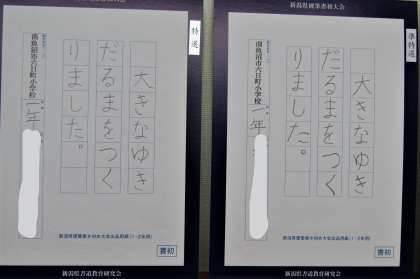 新潟県硬筆書初大会
特選
大きなゆき
だるまをつく
りました。
南魚沼市六日町小学校一年
新潟県硬筆書き初め大会出品用紙(1・2年用)
書初
新潟県書道教育研究会
新潟県硬筆書初大会
準特選
大きなゆき
だるまをつく
りました。
南魚沼市六日町小学校一年
新潟県硬筆書き初め大会出品用紙(1・2年用)
書初
新潟県書道教育研究会